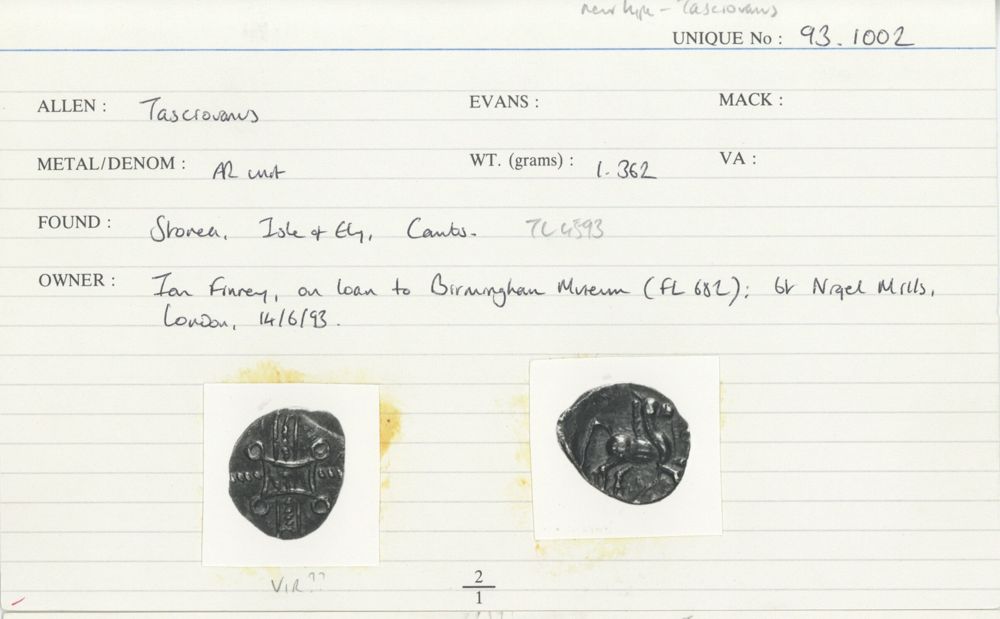 new type - Tasciovanus
UNIQUE No : 93.1002
ALLEN : Tasciovanus EVANS : MACK :
METAL/DENOM : AR unit WT. (grams) : 1.362 VA :
FOUND : Stonea, Isle of Ely, Cambs. TL 4593
OWNER : Ian Finney, on loan to Birmingham Museum (FL 682); bt Nigel Mills,
London, 14/6/93.
VIR??
2
1